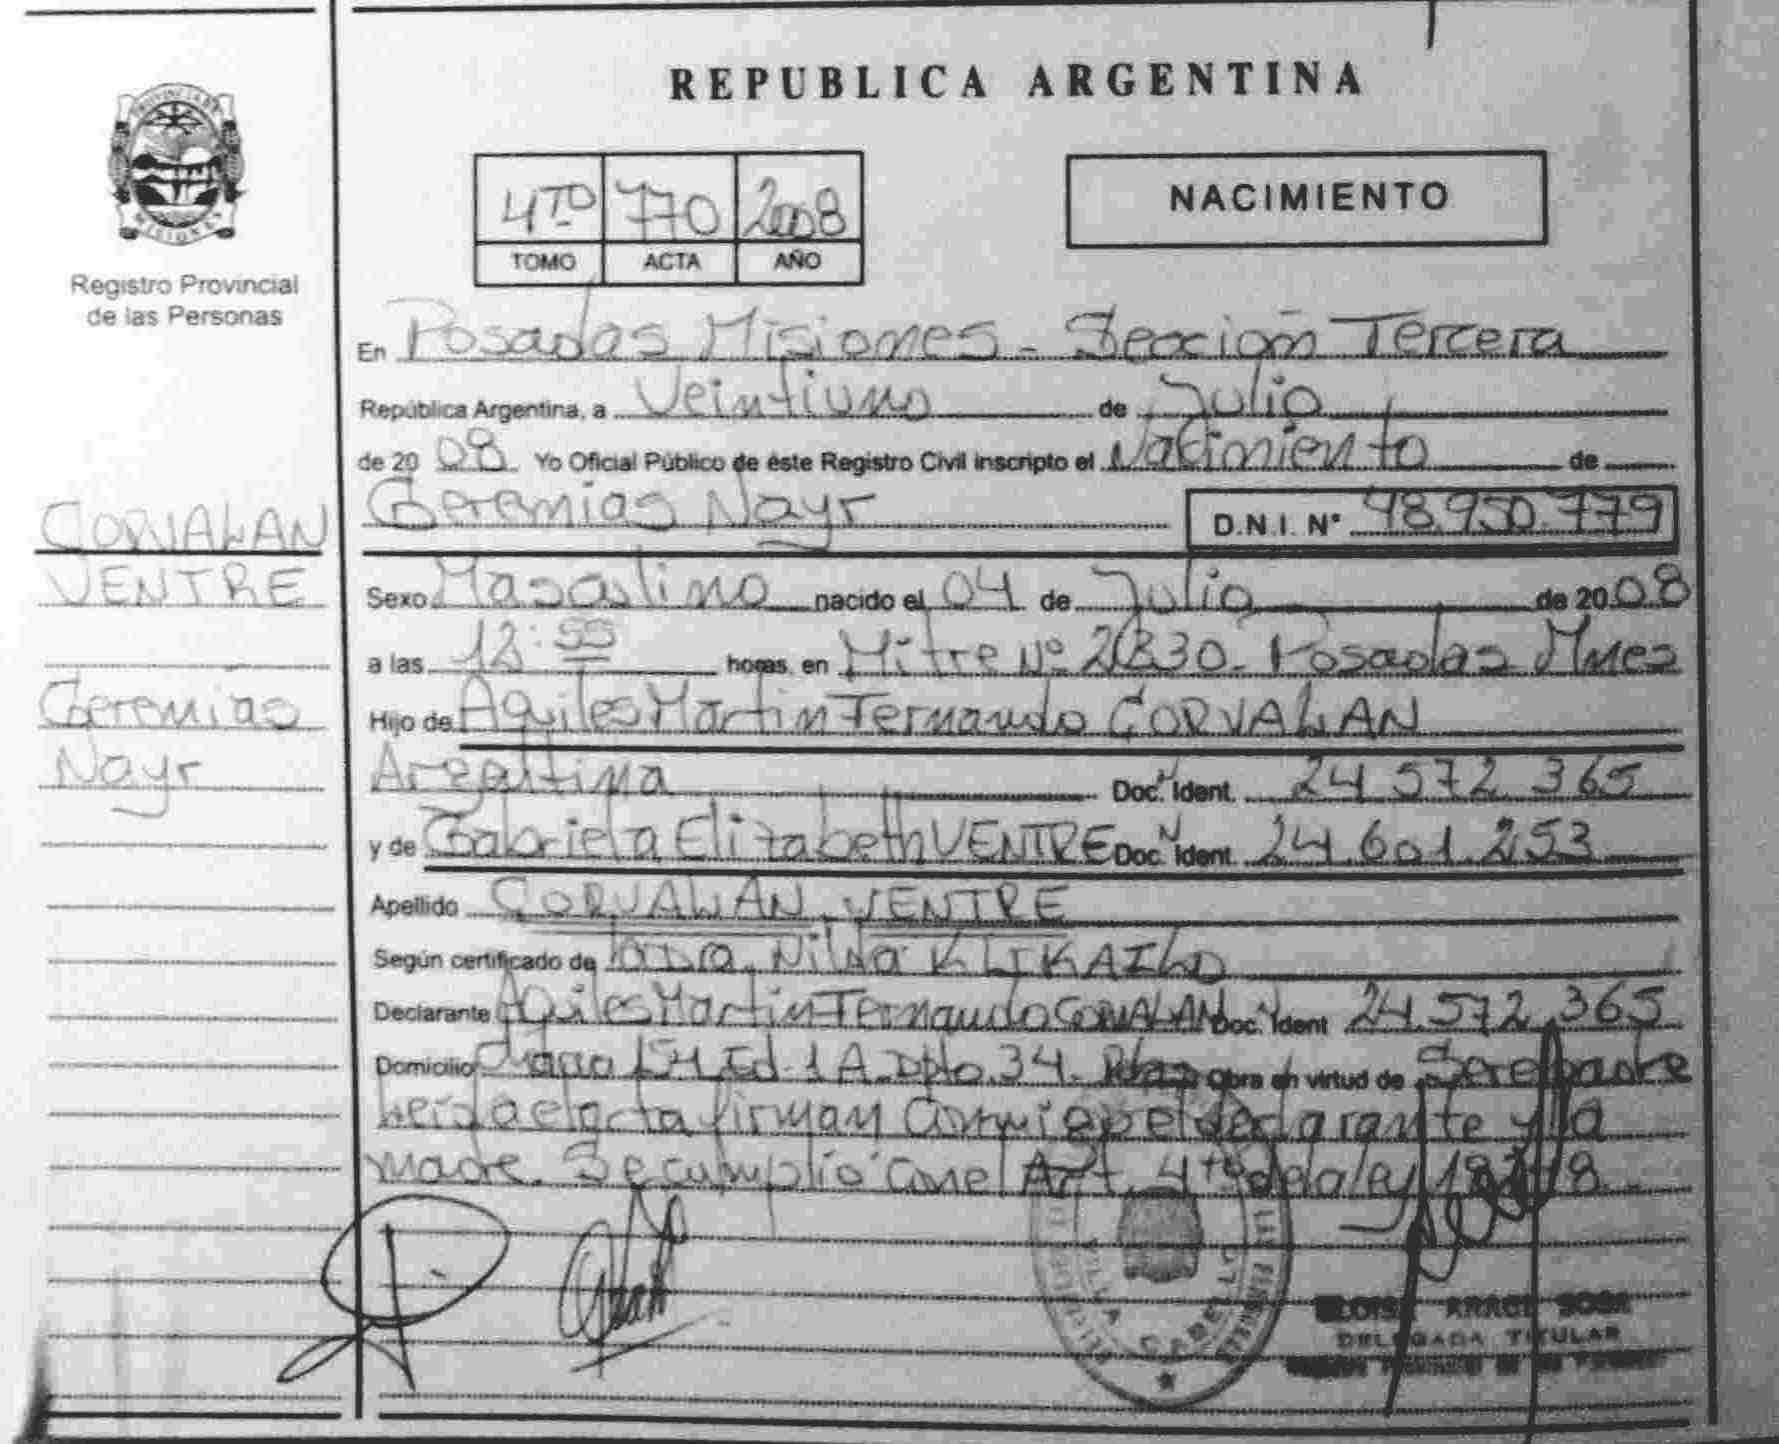 REPUBLICA ARGENTINA
PROVINCIA DE
MISIONES
Registro Provincial
de las Personas
4TO 770 2008
TOMO ACTA AÑO
NACIMIENTO
En Posadas Misiones - Sección Tercera
República Argentina, a Veintiuno de Julio
de 20 08 Yo Oficial Público de éste Registro Civil inscripto el Nacimiento de
Geremias Nayr D.N.I. N° 48.950.779
CORVALAN
VENTRE
Geremias
Nayr
Sexo Masculino nacido el 04 de Julio de 20 08
a las 12:55 horas, en Mitre Nº 2830- Posadas Mnes
Hijo de Aquiles Martin Fernando CORVALAN
Argentina Doc. Ident. 24 572 365
y de Gabriela Elizabeth VENTRE Doc. Ident. 24.601.253
Apellido CORVALAN VENTRE
Según certificado de Nilda
Declarante Aquiles Martin Fernando CORVALAN Doc. Ident 24.572.365
Domicilio 154 Ed. 1 A Dpto. 34- Pdas Obra en virtud de Ser el padre
leida el acta firman conmigo el declarante y la
madre. Se cumplio con el Art. 4to de la ley
VILLA CABELLO
DELEGADA TITULAR